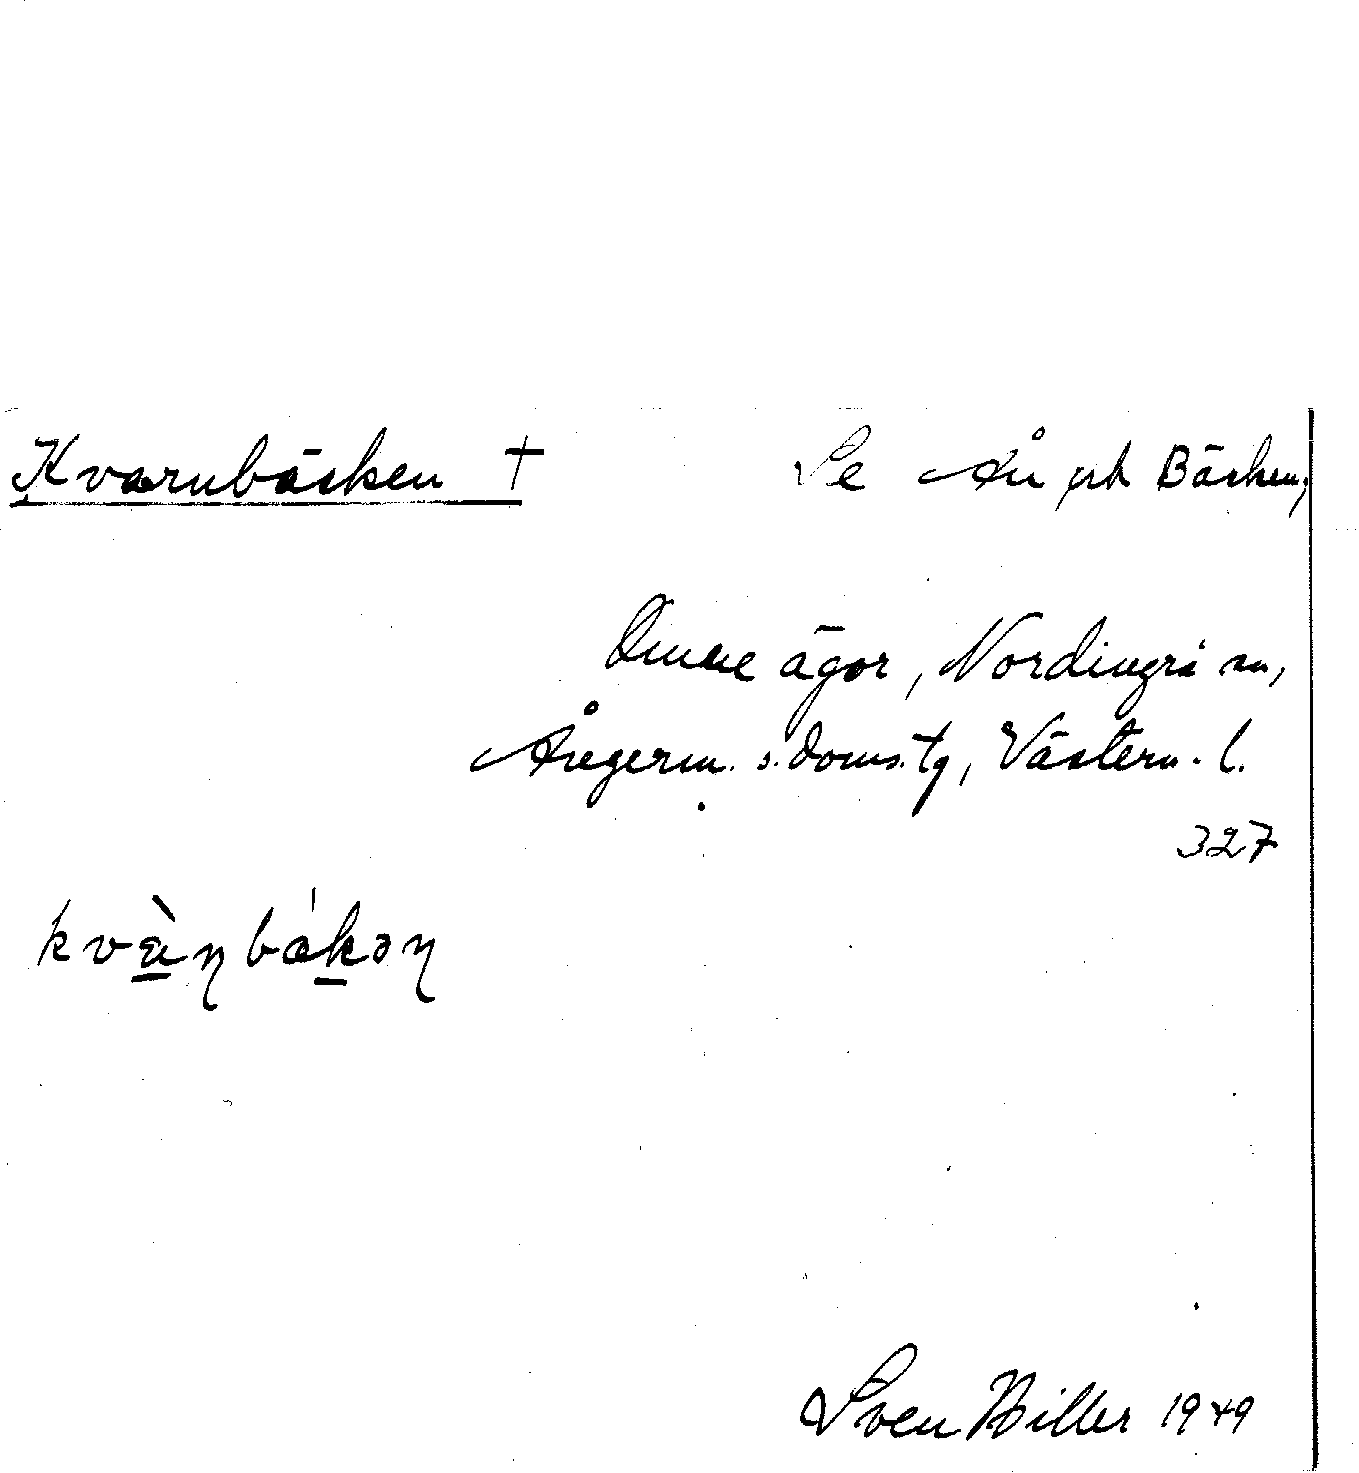 Kvarnbäcken † Se Ån och Bäcken,
Omne ägor, Nordingrå sn,
Ångerm. s. doms. tg, Västern. l.
327
Sven Hiller 1949